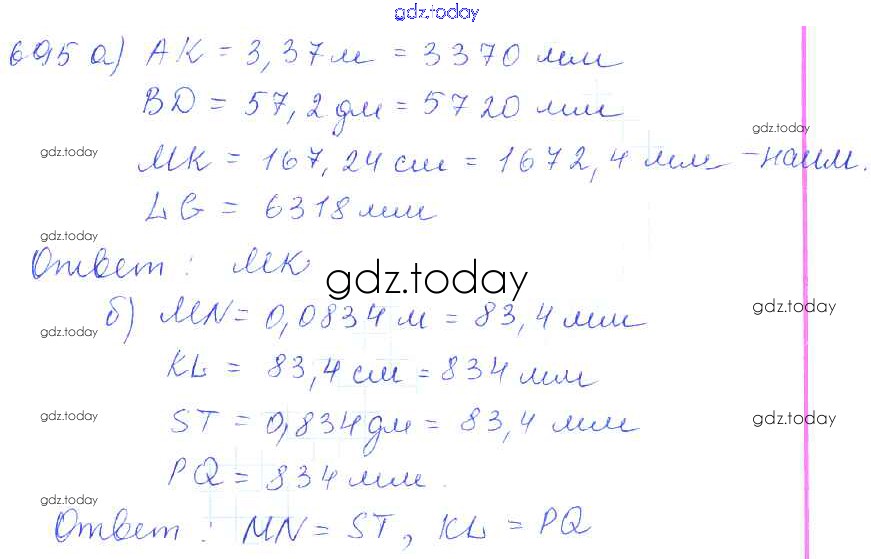 gdz.today
695 а) AK = 3,37 м = 3370 мм
BD = 57,2 дм = 5720 мм
gdz.today
gdz.today
MK = 167,24 см = 1672,4 мм - наим.
LG = 6318 мм
gdz.today
Ответ: MK
gdz.today
б) MN = 0,0834 м = 83,4 мм
gdz.today
gdz.today
KL = 83,4 см = 834 мм
ST = 0,834 дм = 83,4 мм
gdz.today
gdz.today
PQ = 834 мм.
gdz.today
Ответ: MN = ST, KL = PQ